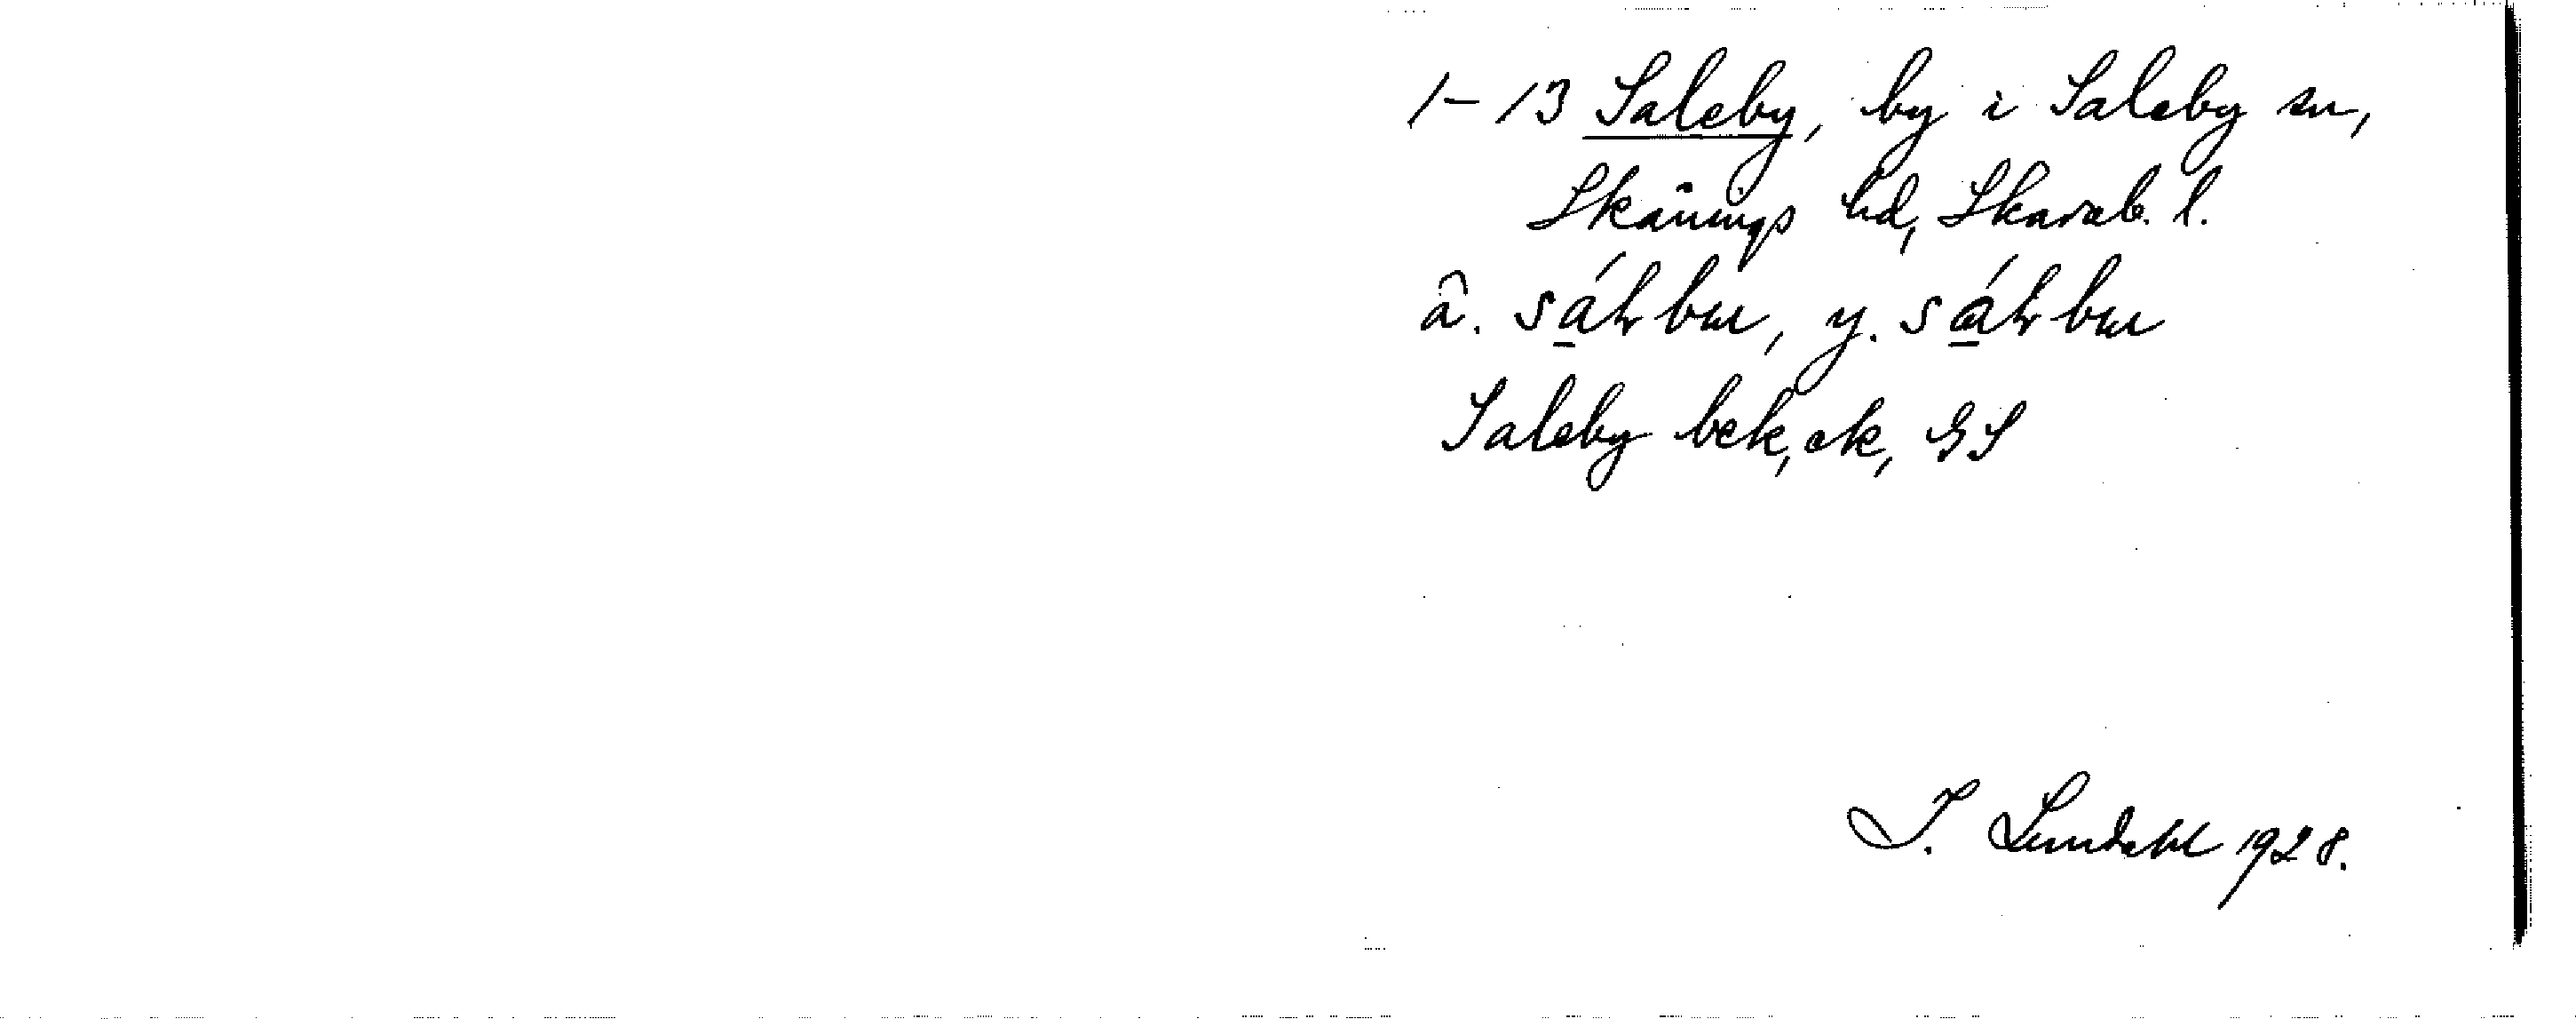 1-13 Saleby, by i Saleby sn,
Skånings hd, Skarab. l.
â. y.
Saleby bek, ek, GS
I. Lundahl 1928.